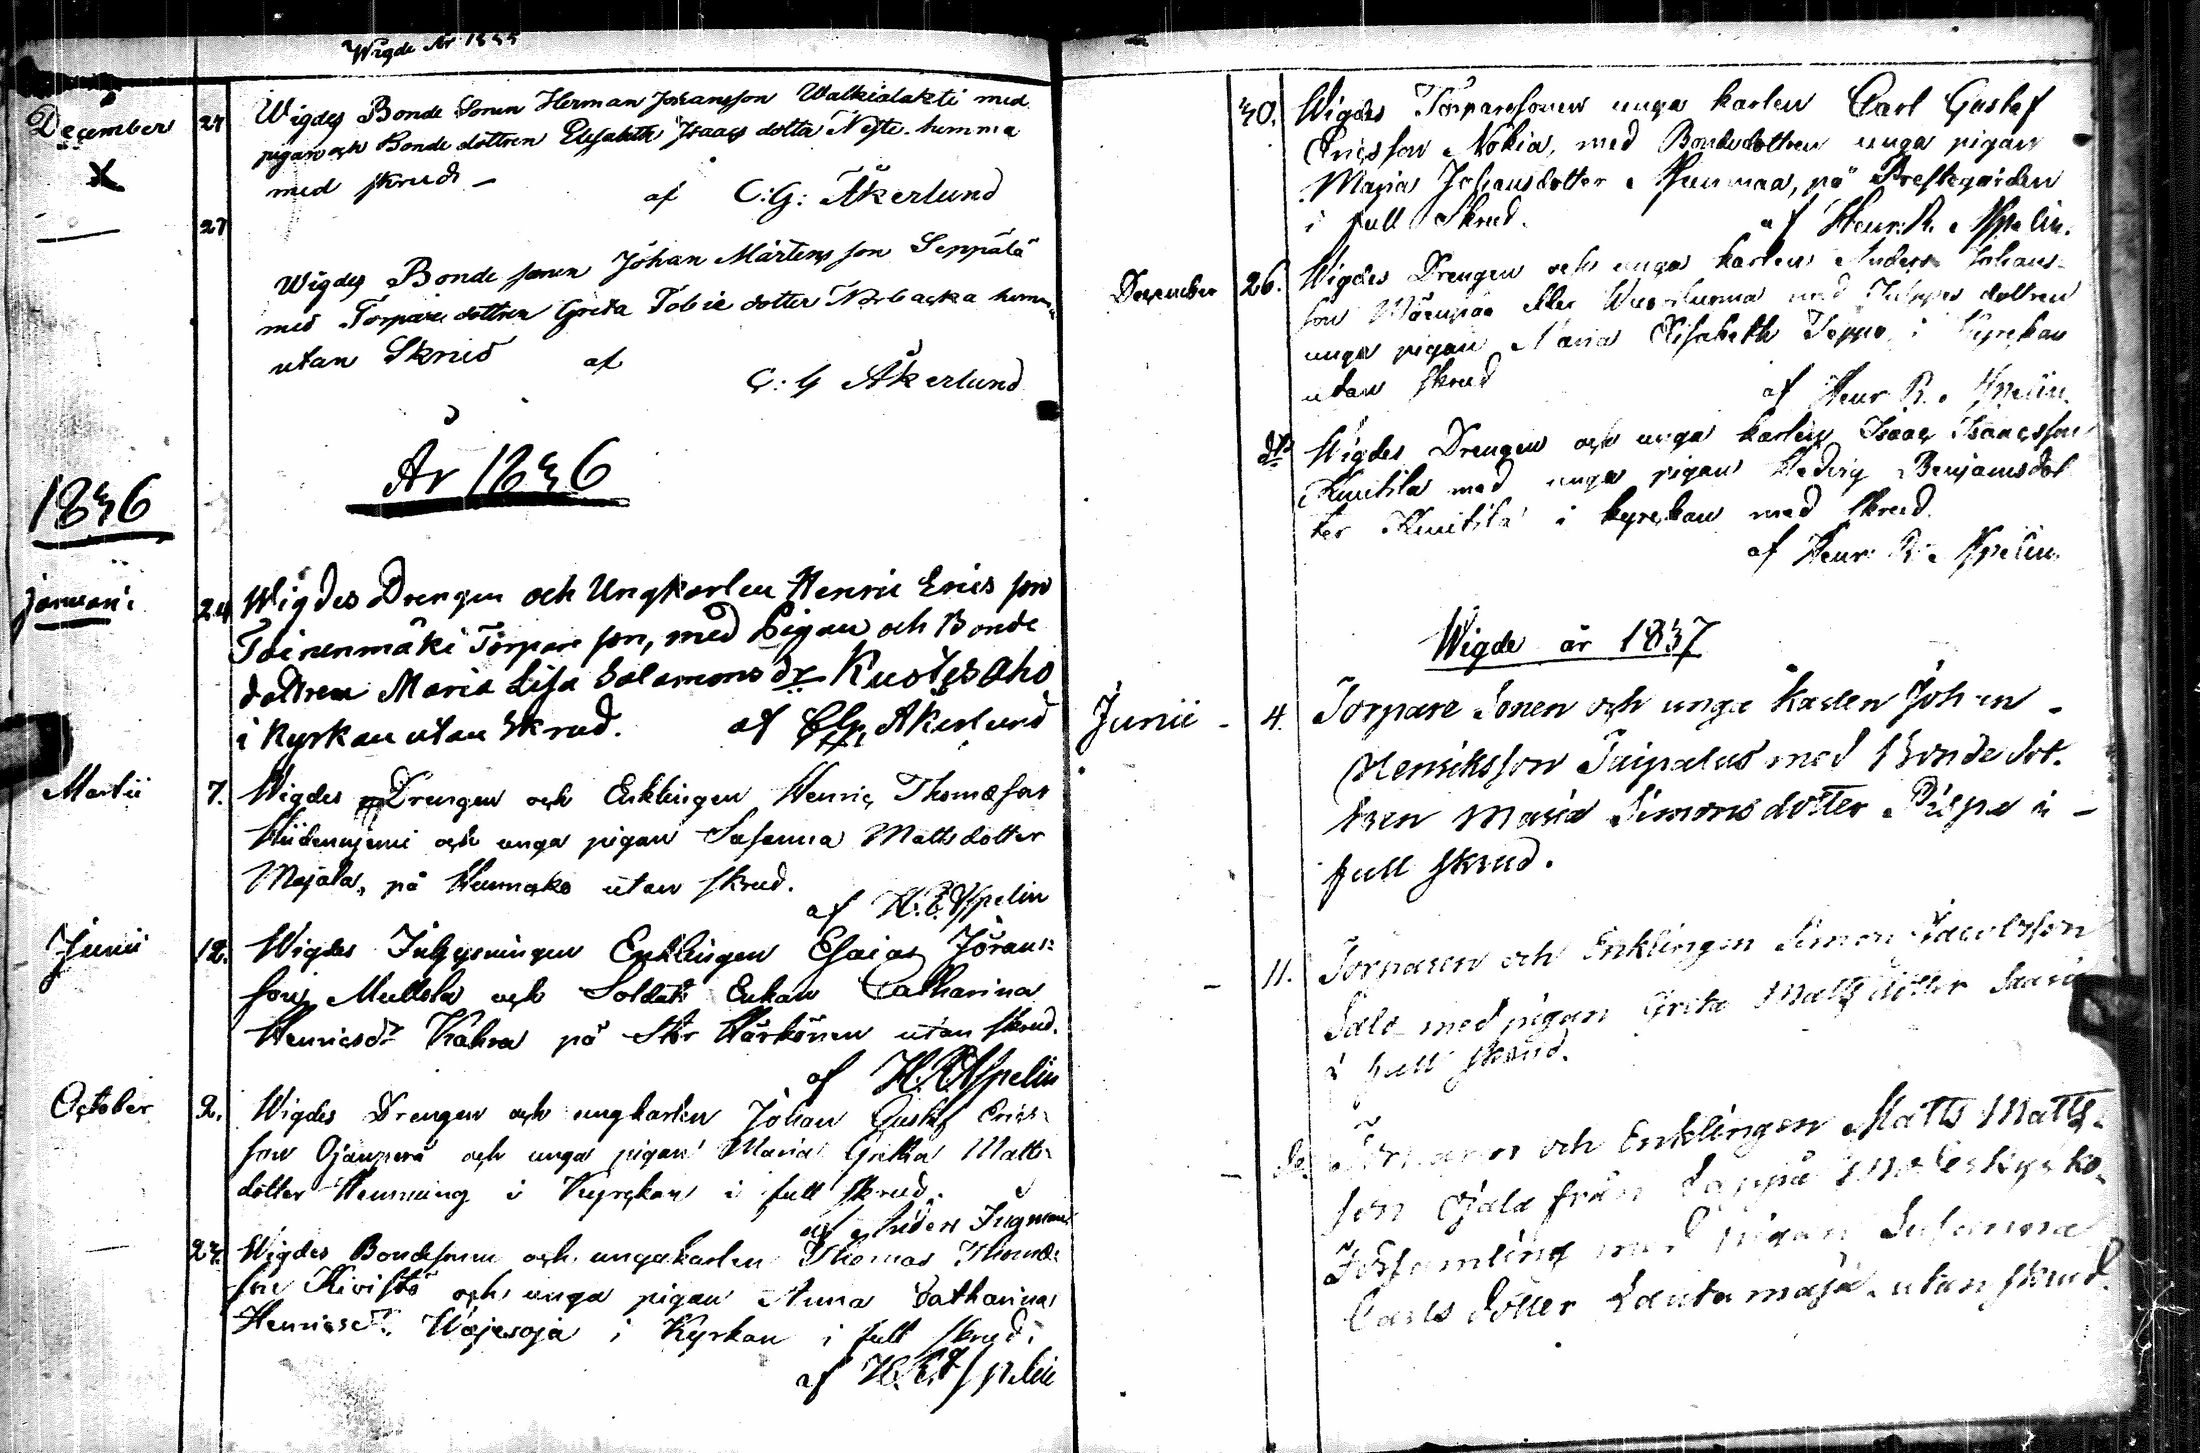 Wigde År 1835
December 27 Wigdes Bonde Sonen Herman Johansson Walkialakti med
pigan och Bonde dottren Elisabeth Isaacs dotter hemma
med skrud – af C:G: Åkerlund
27
Wigdes Bonde sonen Johan Mårtensson Seppälä
med Torpare dottren Greta Tobie dotter Norbacka hemma
utan Skrud af
C: G Åkerlund
År 1836
1836
Januari 24 Wigdes Drengen och Ungkarlen Henric Erics son
Toinenmäki Torpare son, med Pigan och Bonde
dottren Maria Lisa Salomons dr Kustesaho
i Kyrkan utan Skrud. af CG Åkerlund
Martii 7. Wigdes Drengen och Enklingen Henric Thomasson
Hiidenniemi och unga pigan Susanna Matts dotter
Majala, på utan skrud.
af H. R. Aspelin
Junii 12. Wigdes Inhysningen Enklingen Esaias Jörans-
son Mullola och Soldats Enkan Catharina
Henricsdr Kahra på Stor Härkönen utan skrud.
af H. R. Aspelin
October 2. Wigdes Drengen och ungkarlen Johan Gustaf Erics-
son Ojanperä och unga pigan Maria Gretha Matts-
dotter Hemming i Kyrckan i full skrud.
af Anders Ingman
24. Wigdes Bondesonen och ungakarlen Thomas Thomæ-
son Kivistö och unga pigan Anna Catharina
Henricsdr. Wäjesoja i Kyrkan i full skrud.
af H. R. Aspelin
30. Wigdes Torparesonen unga karlen Carl Gustaf
Ericsson Nokia, med Bondedottren unga pigan
Maria Johansdotter Hunmaa, på Prestegården
i full Skrud. af Henr. R. Aspelin.
December 26. Wigdes Drengen och unga karlen Anders Johans-
son eller med dottren
unga pigan Maria Elisabeth Seppo, i Kyrckan
utan skrud
af Henr R. Aspelin.
do Wigdes Drengen och unga karlen Isaac Isaacsson
Knutila med unga pigan Hedvig Benjamsdot
ter Knutila i kyrckan med skrud.
af Henr: R. Aspelin.
Wigde år 1837
Junii – 4. Torpare Sonen och unga Karlen Johan –
Henriksson Taipalus med Bonde dot-
tren Maria Simonsdotter Pispa i –
full skrud.
– 11. Torparen och Enklingen Simon Jacobsson
Salo med pigan Greta Matts dotter Saari
i full skrud.
– do. Torparen och Enklingen Matts Matts-
son Ojala från Lappo Moderkyrko-
Församling med pigan Susanna
Carls dotter Lautamaja utan skrud.